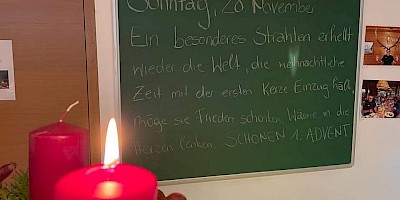 Sonntag, 28. November
Ein besonderes Strahlen erhellt
wieder die Welt, die weihnachtliche
Zeit mit der ersten Kerze Einzug hält,
möge sie Frieden schenken, Wärme in die
Herzen lenken. SCHÖNEN 1. ADVENT